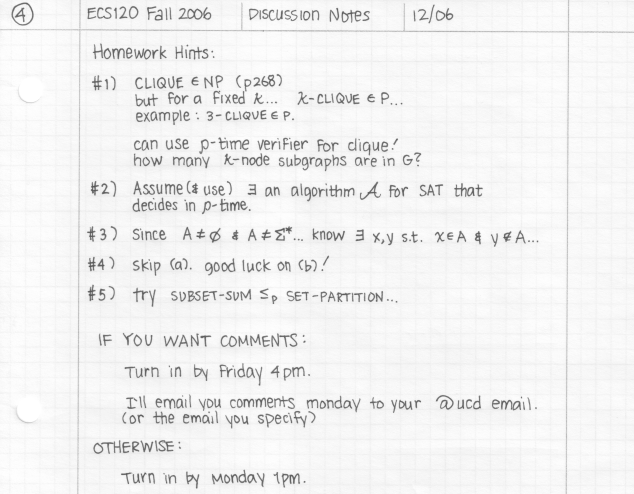 ④ ECS120 Fall 2006 Discussion Notes 12/06
Homework Hints:
#1) CLIQUE ∈ NP (p268)
but for a fixed k... k-CLIQUE ∈ P...
example: 3-CLIQUE ∈ P.
can use p-time verifier for clique!
how many k-node subgraphs are in G?
#2) Assume (& use) ∃ an algorithm A for SAT that
decides in p-time.
#3) Since A ≠ ∅ & A ≠ Σ*... know ∃ x,y s.t. x∈A & y∉A...
#4) skip (a). good luck on (b)!
#5) try SUBSET-SUM ≤p SET-PARTITION...
IF YOU WANT COMMENTS:
Turn in by Friday 4pm.
I'll email you comments monday to your @ucd email.
(or the email you specify)
OTHERWISE:
Turn in by Monday 1pm.